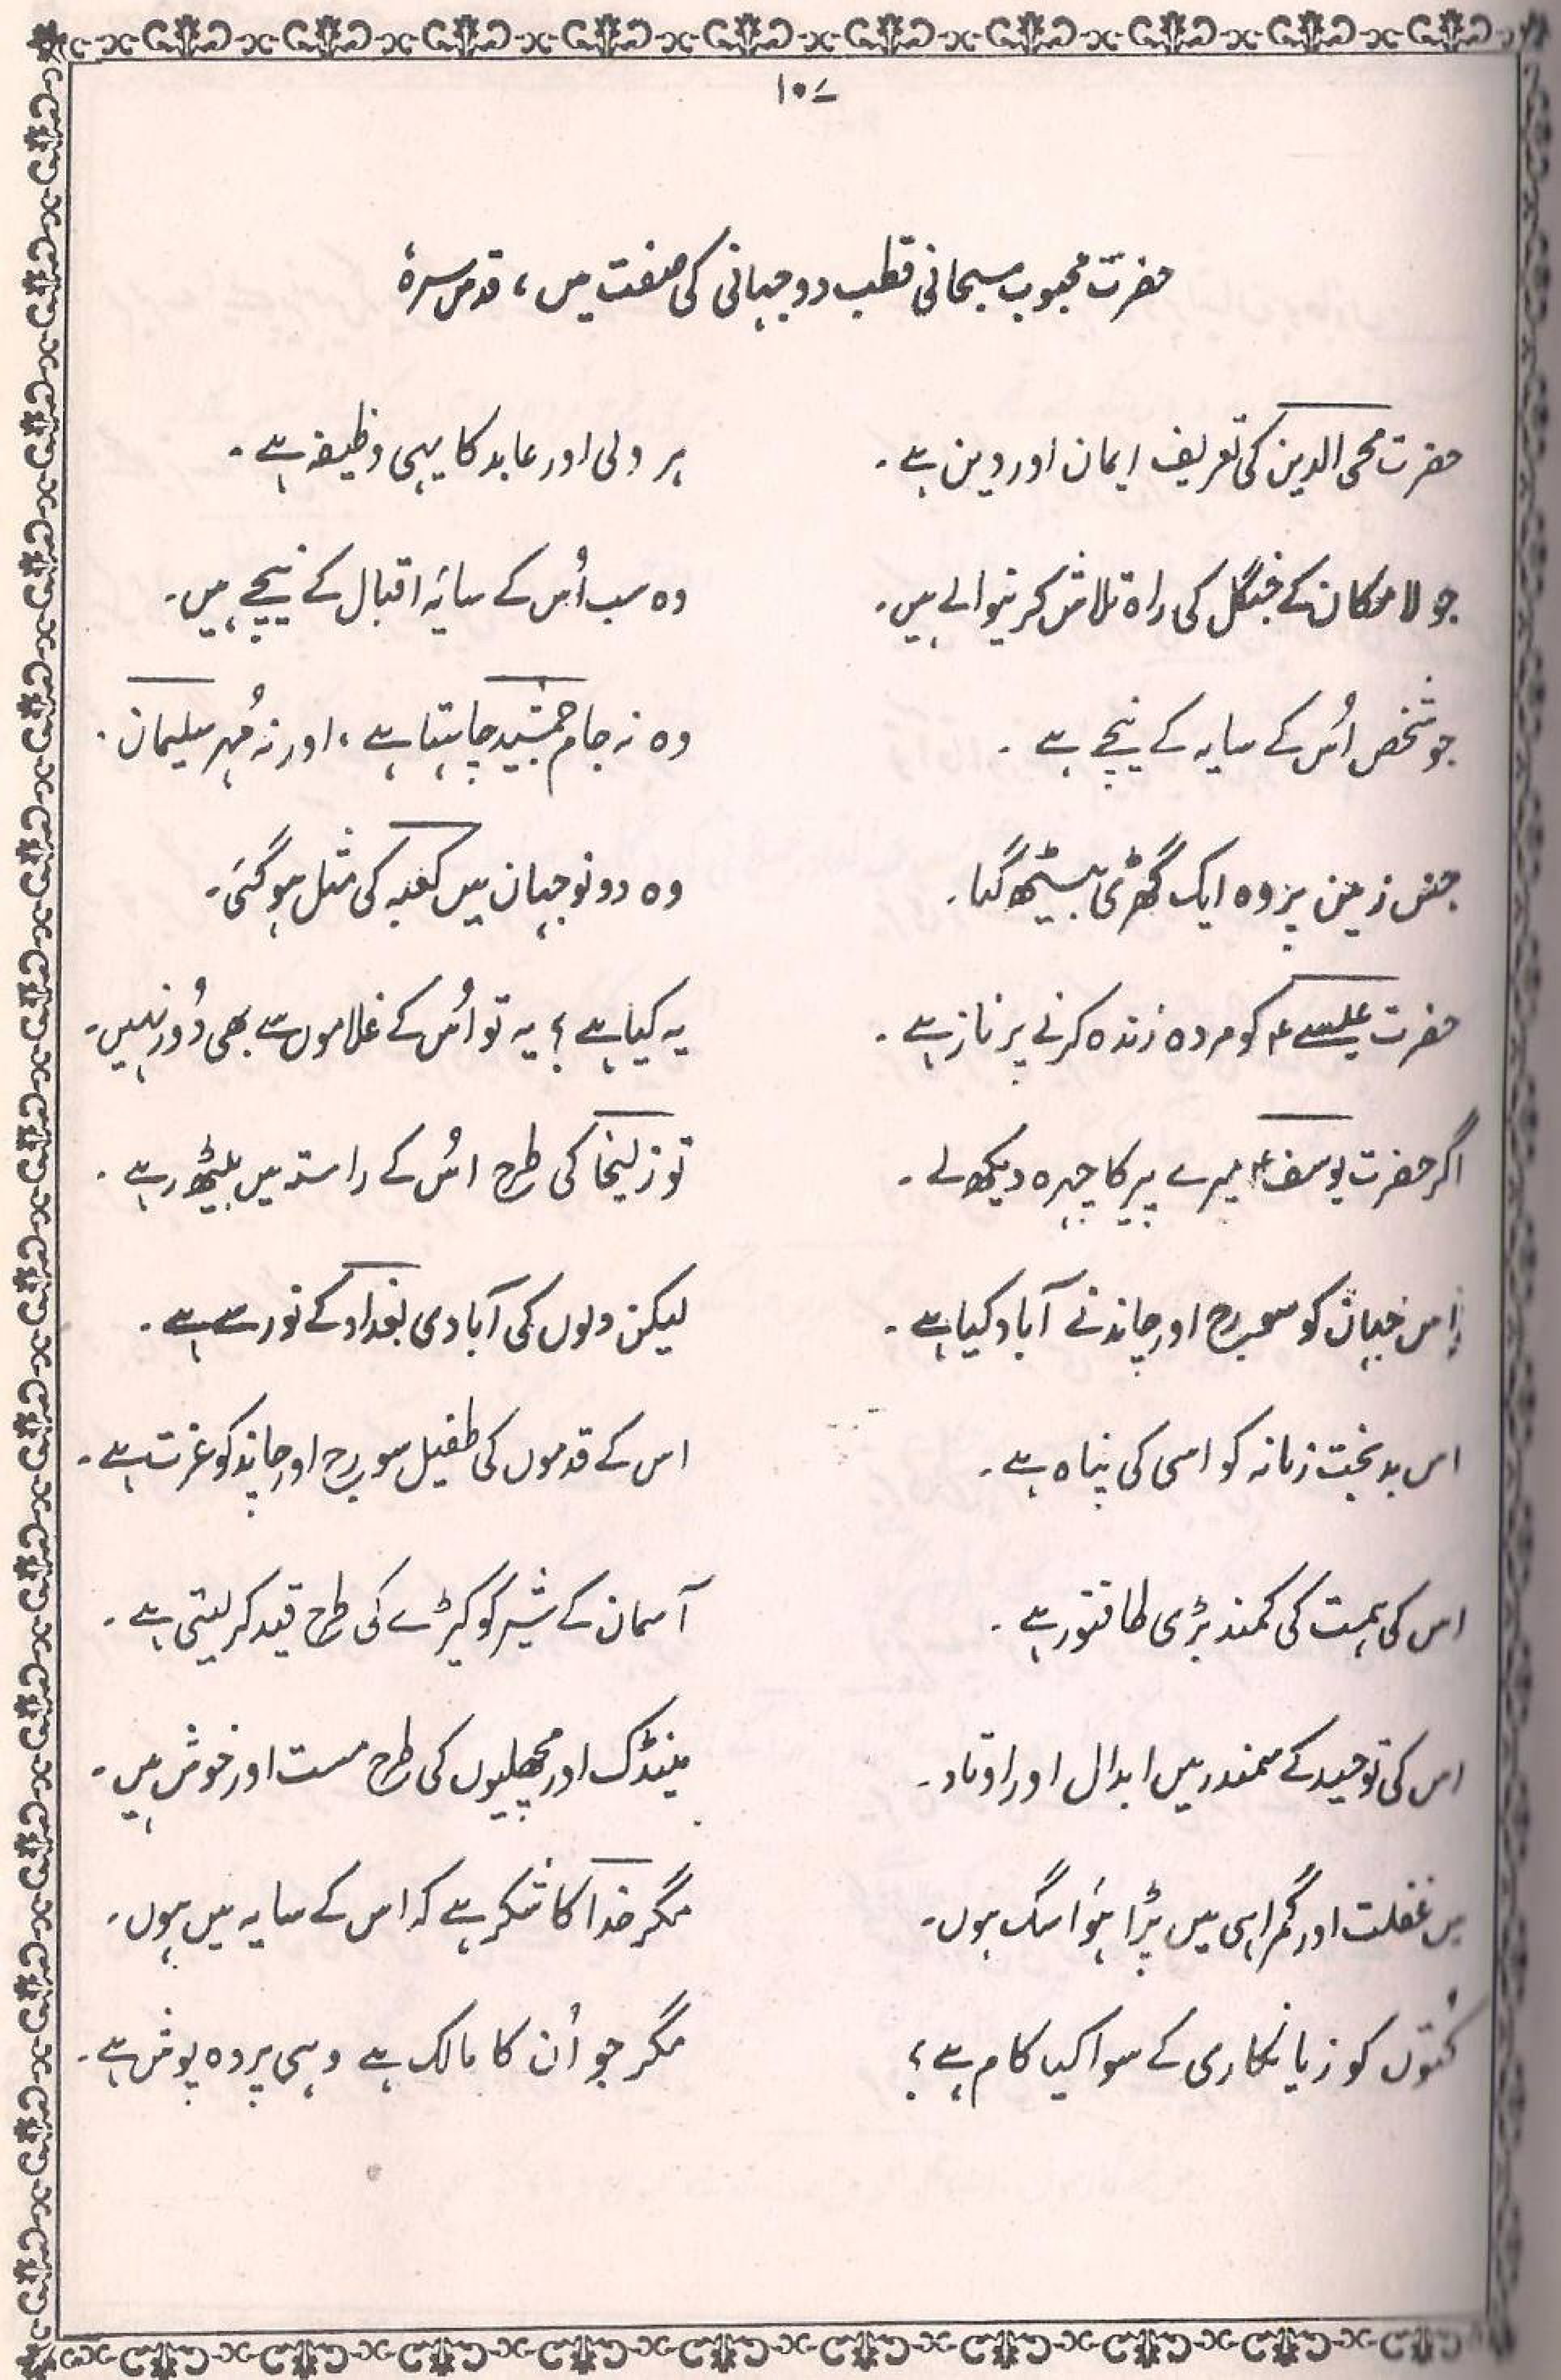 ۱۰۷
حضرت محبوب سبحانی قطب دو جہانی کی صفت میں، قدس سرہٗ
حضرت محی الدین کی تعریف ایمان اور دین ہے۔ ہر ولی اور عابد کا یہی وظیفہ ہے۔
جو لامکان کے جنگل کی راہ تلاش کرنیوالے ہیں۔ وہ سب اُس کے سایۂ اقبال کے نیچے ہیں۔
جو شخص اُس کے سایہ کے نیچے ہے۔ وہ نہ جام جمشید چاہتا ہے، اور نہ مُہر سلیمان۔
جس زمین پر وہ ایک گھڑی بیٹھ گیا۔ وہ دونو جہان میں کعبہ کی مثل ہو گئی۔
حضرت عیسےٰ ؑ کو مردہ زندہ کرنے پر ناز ہے۔ یہ کیا ہے؟ یہ تو اُس کے غلاموں سے بھی دُور نہیں۔
اگر حضرت یوسف ؑ میرے پیر کا چہرہ دیکھ لے۔ تو زلیخا کی طرح اُس کے راستہ میں بیٹھ رہے۔
اِس جہان کو سورج اور چاند نے آباد کیا ہے۔ لیکن دلوں کی آبادی بغداد کے نور سے ہے۔
اس بدبخت زمانہ کو اسی کی پناہ ہے۔ اس کے قدموں کی طفیل سورج اور چاند کو عزت ہے۔
اس کی ہمت کی کمند بڑی طاقتور ہے۔ آسمان کے شیر کو کیڑے کی طرح قید کر لیتی ہے۔
اس کی توحید کے سمندر میں ابدال اور اوتاد۔ مینڈک اور مچھلیوں کی طرح مست اور خوش ہیں۔
میں غفلت اور گمراہی میں پڑا ہوُا سگ ہوں۔ مگر خدا کا شکر ہے کہ اس کے سایہ میں ہوں۔
کُتّوں کو زیانکاری کے سوا کیا کام ہے؟ مگر جو اُن کا مالک ہے وہی پردہ پوش ہے۔